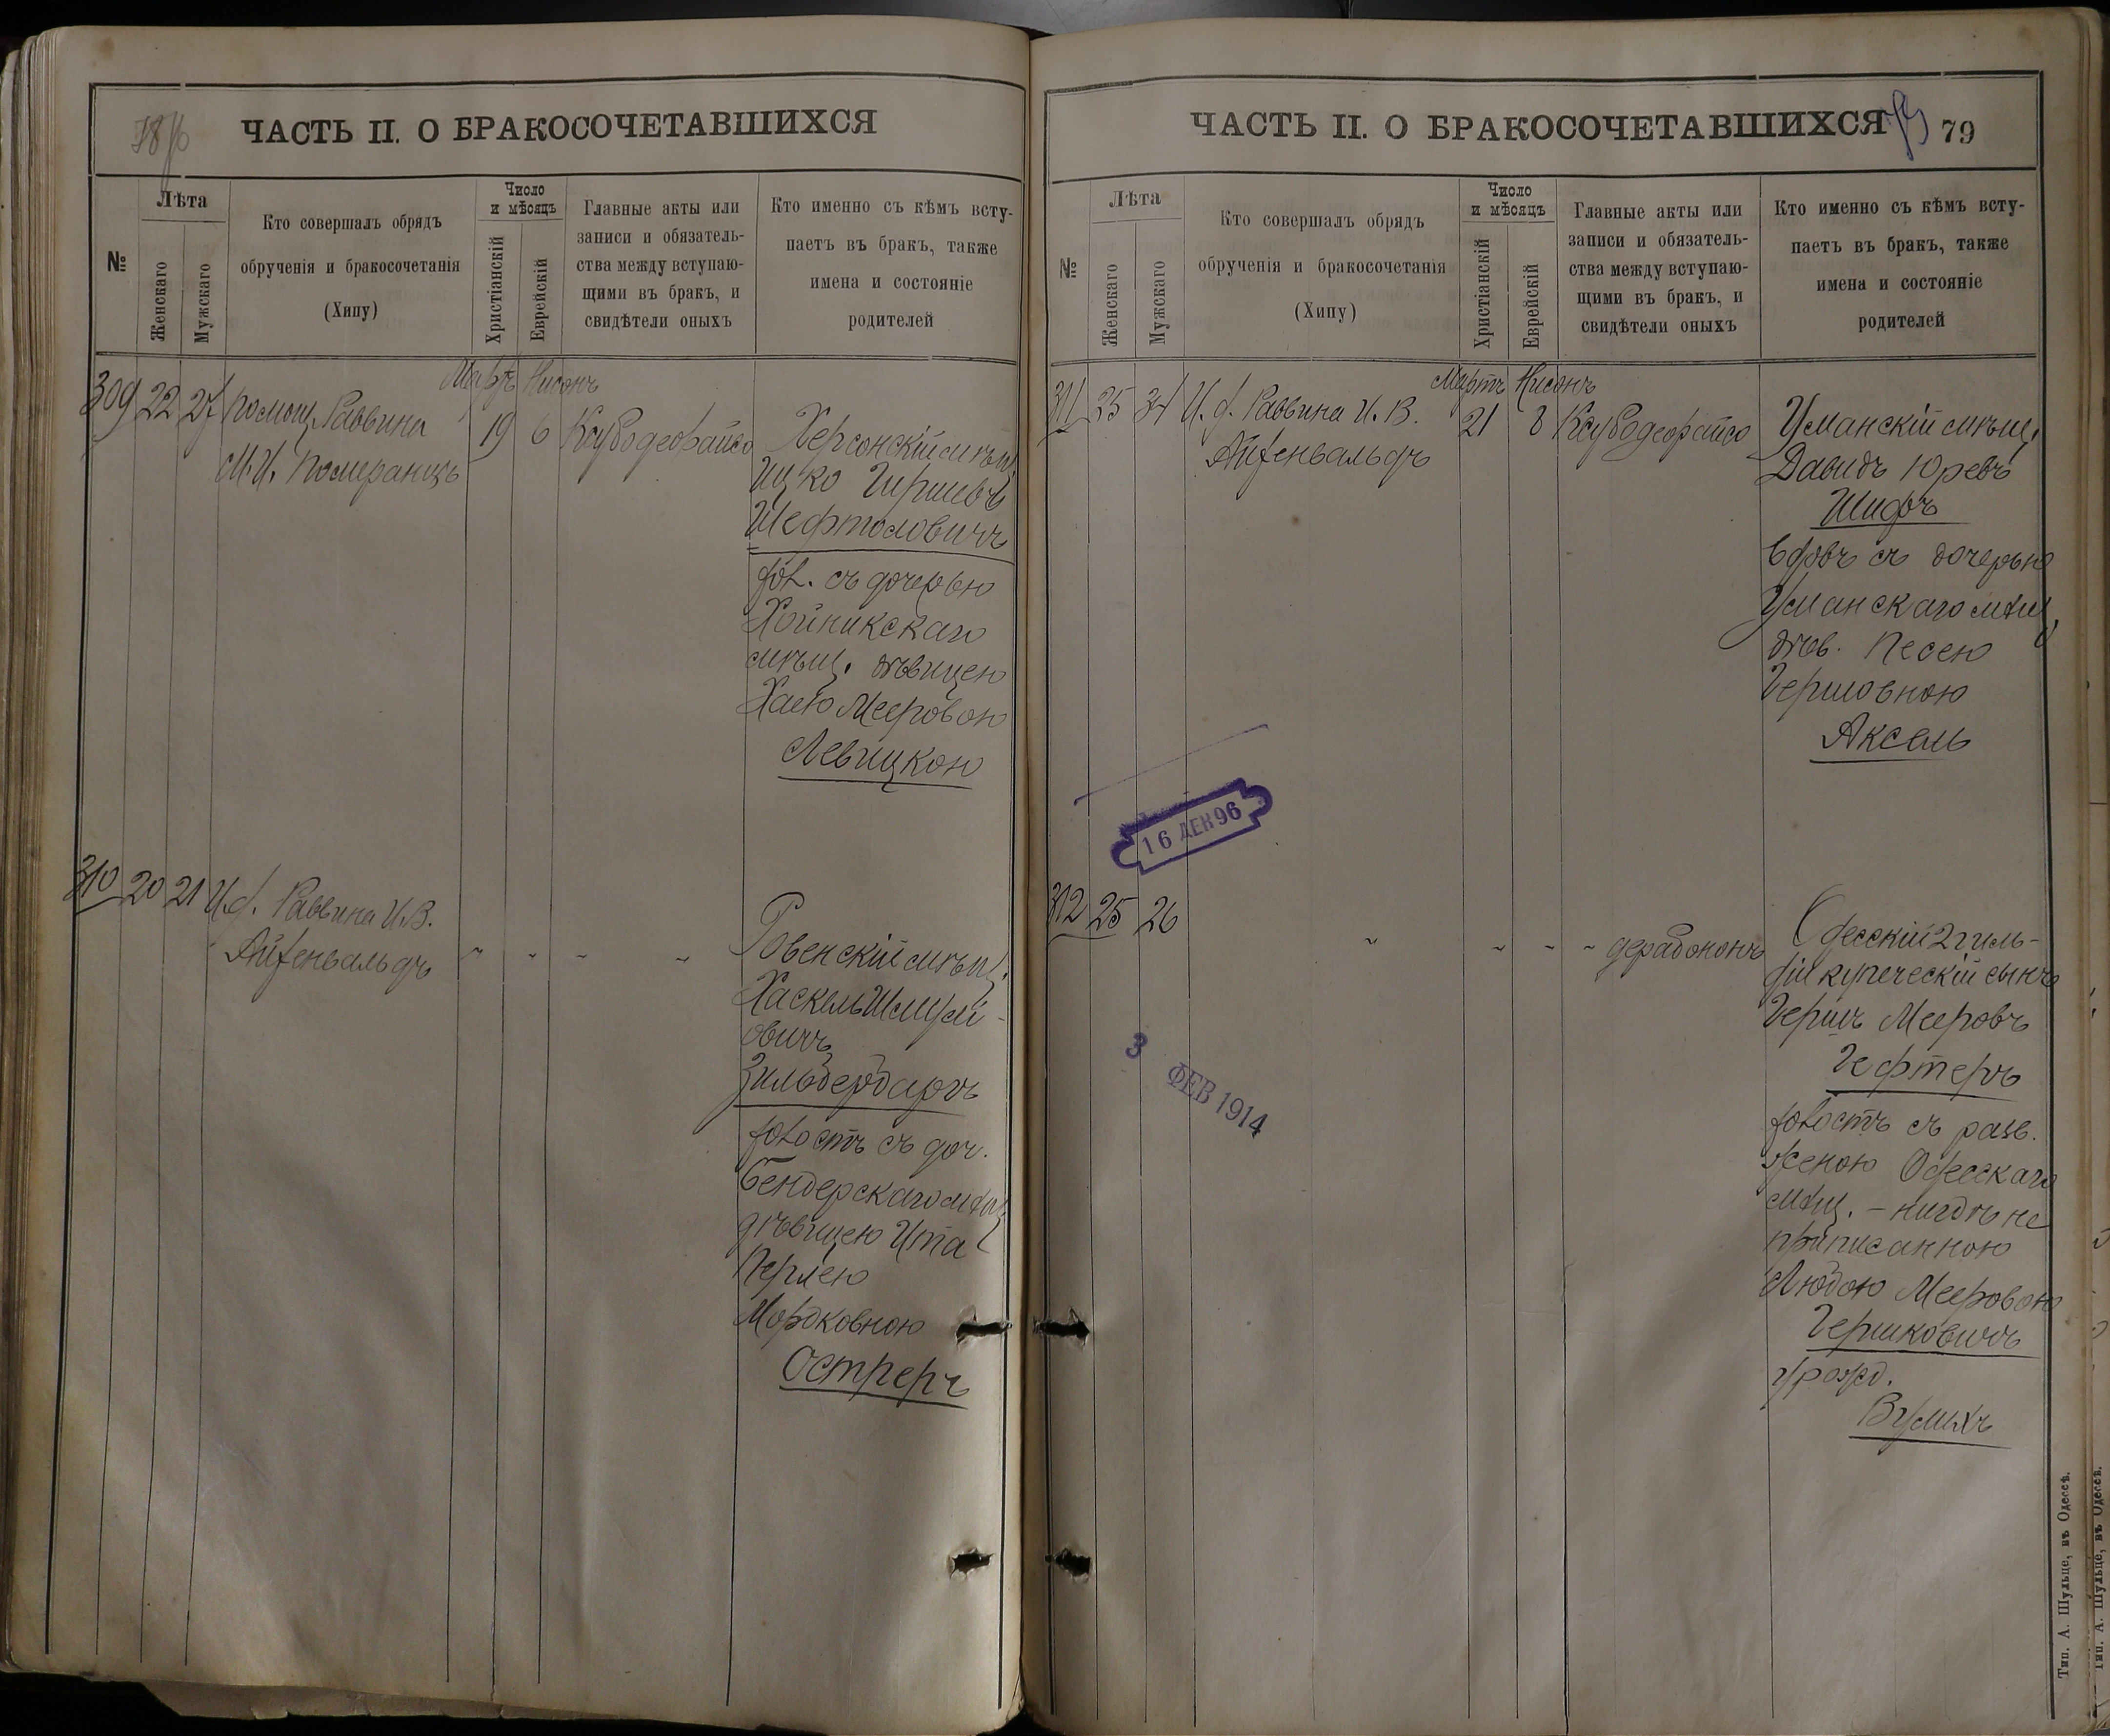 78об
ЧАСТЬ II. О БРАКОСОЧЕТАВШИХСЯ
№
Лѣта
Женскаго
Мужскаго
Кто совершалъ обрядъ
обрученія и бракосочетанія
(Хипу)
Число
и мѣсяцъ
Христіанскій
Еврейскій
Главные акты или
записи и обязатель-
ства между вступаю-
щими въ бракъ, и
свидѣтели оныхъ
Кто именно съ кѣмъ всту-
паетъ въ бракъ, также
имена и состояніе
родителей
Мартъ Нисонъ
309 22 27 Помощ. Раввина 19 6 Ксубодеорайсо Херсонскій мѣщ.
М. И. Померанцъ
Ицко Гиршевъ
Шефтоловичъ
хол. съ дочерью
Хойникскаго
мѣщ. дѣвицею
Хаею Мееровою
Левицкою
310 20 21 И. д. Раввина И. В.
Айхенвальдъ " " " " Ровенскій мѣщ.
Хаскель Шмуй-
овичъ
Зильбербаръ
холостъ съ доч.
Бендерскаго мѣщ.
дѣвицею Ита
Перлею
Мордковною
Остреръ
ЧАСТЬ II. О БРАКОСОЧЕТАВШИХСЯ
79 79
№
Лѣта
Женскаго
Мужскаго
Кто совершалъ обрядъ
обрученія и бракосочетанія
(Хипу)
Число
и мѣсяцъ
Христіанскій
Еврейскій
Главные акты или
записи и обязатель-
ства между вступаю-
щими въ бракъ, и
свидѣтели оныхъ
Кто именно съ кѣмъ всту-
паетъ въ бракъ, также
имена и состояніе
родителей
Мартъ Нисонъ
311 25 34 И. д. Раввина И. В. 21 8 Ксубодеорайсо Уманскій мѣщ.
Айхенвальдъ
Давидъ Юревъ
Шифъ
вдовъ съ дочерью
Уманскаго мѣщ.
дѣв. Песею
Гершовною
Аксель
16 ДЕК 96
312 25 26 " " " " дерабононъ Одесскій 2 гиль-
діи купеческій сынъ
Гершъ Мееровъ
Гефтеръ
холостъ съ разв.
женою Одесскаго
мѣщ. - нигдѣ не
приписанною
Любою Мееровою
Гершковичъ
урожд.
Вульхъ
3 ФЕВ 1914
Тип. А. Шульце, въ Одессѣ.
Тип. А. Шульце, въ Одессѣ.